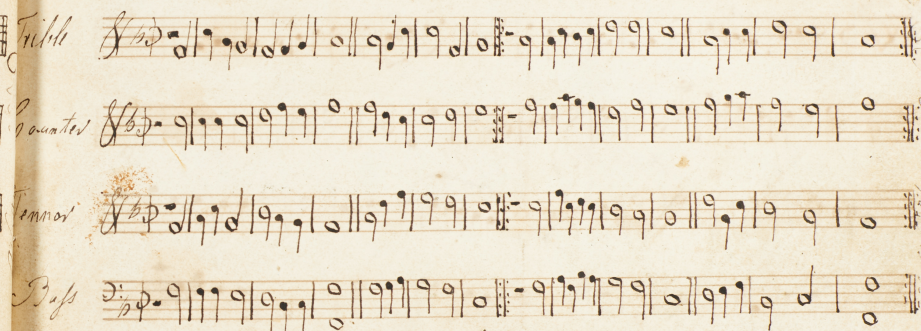 Trible
Counter
Tennor
Bass